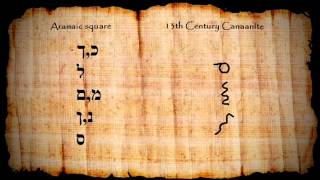 Aramaic square
13th Century Canaanite
כ,ך
ל
מ,ם
נ,ן
ס